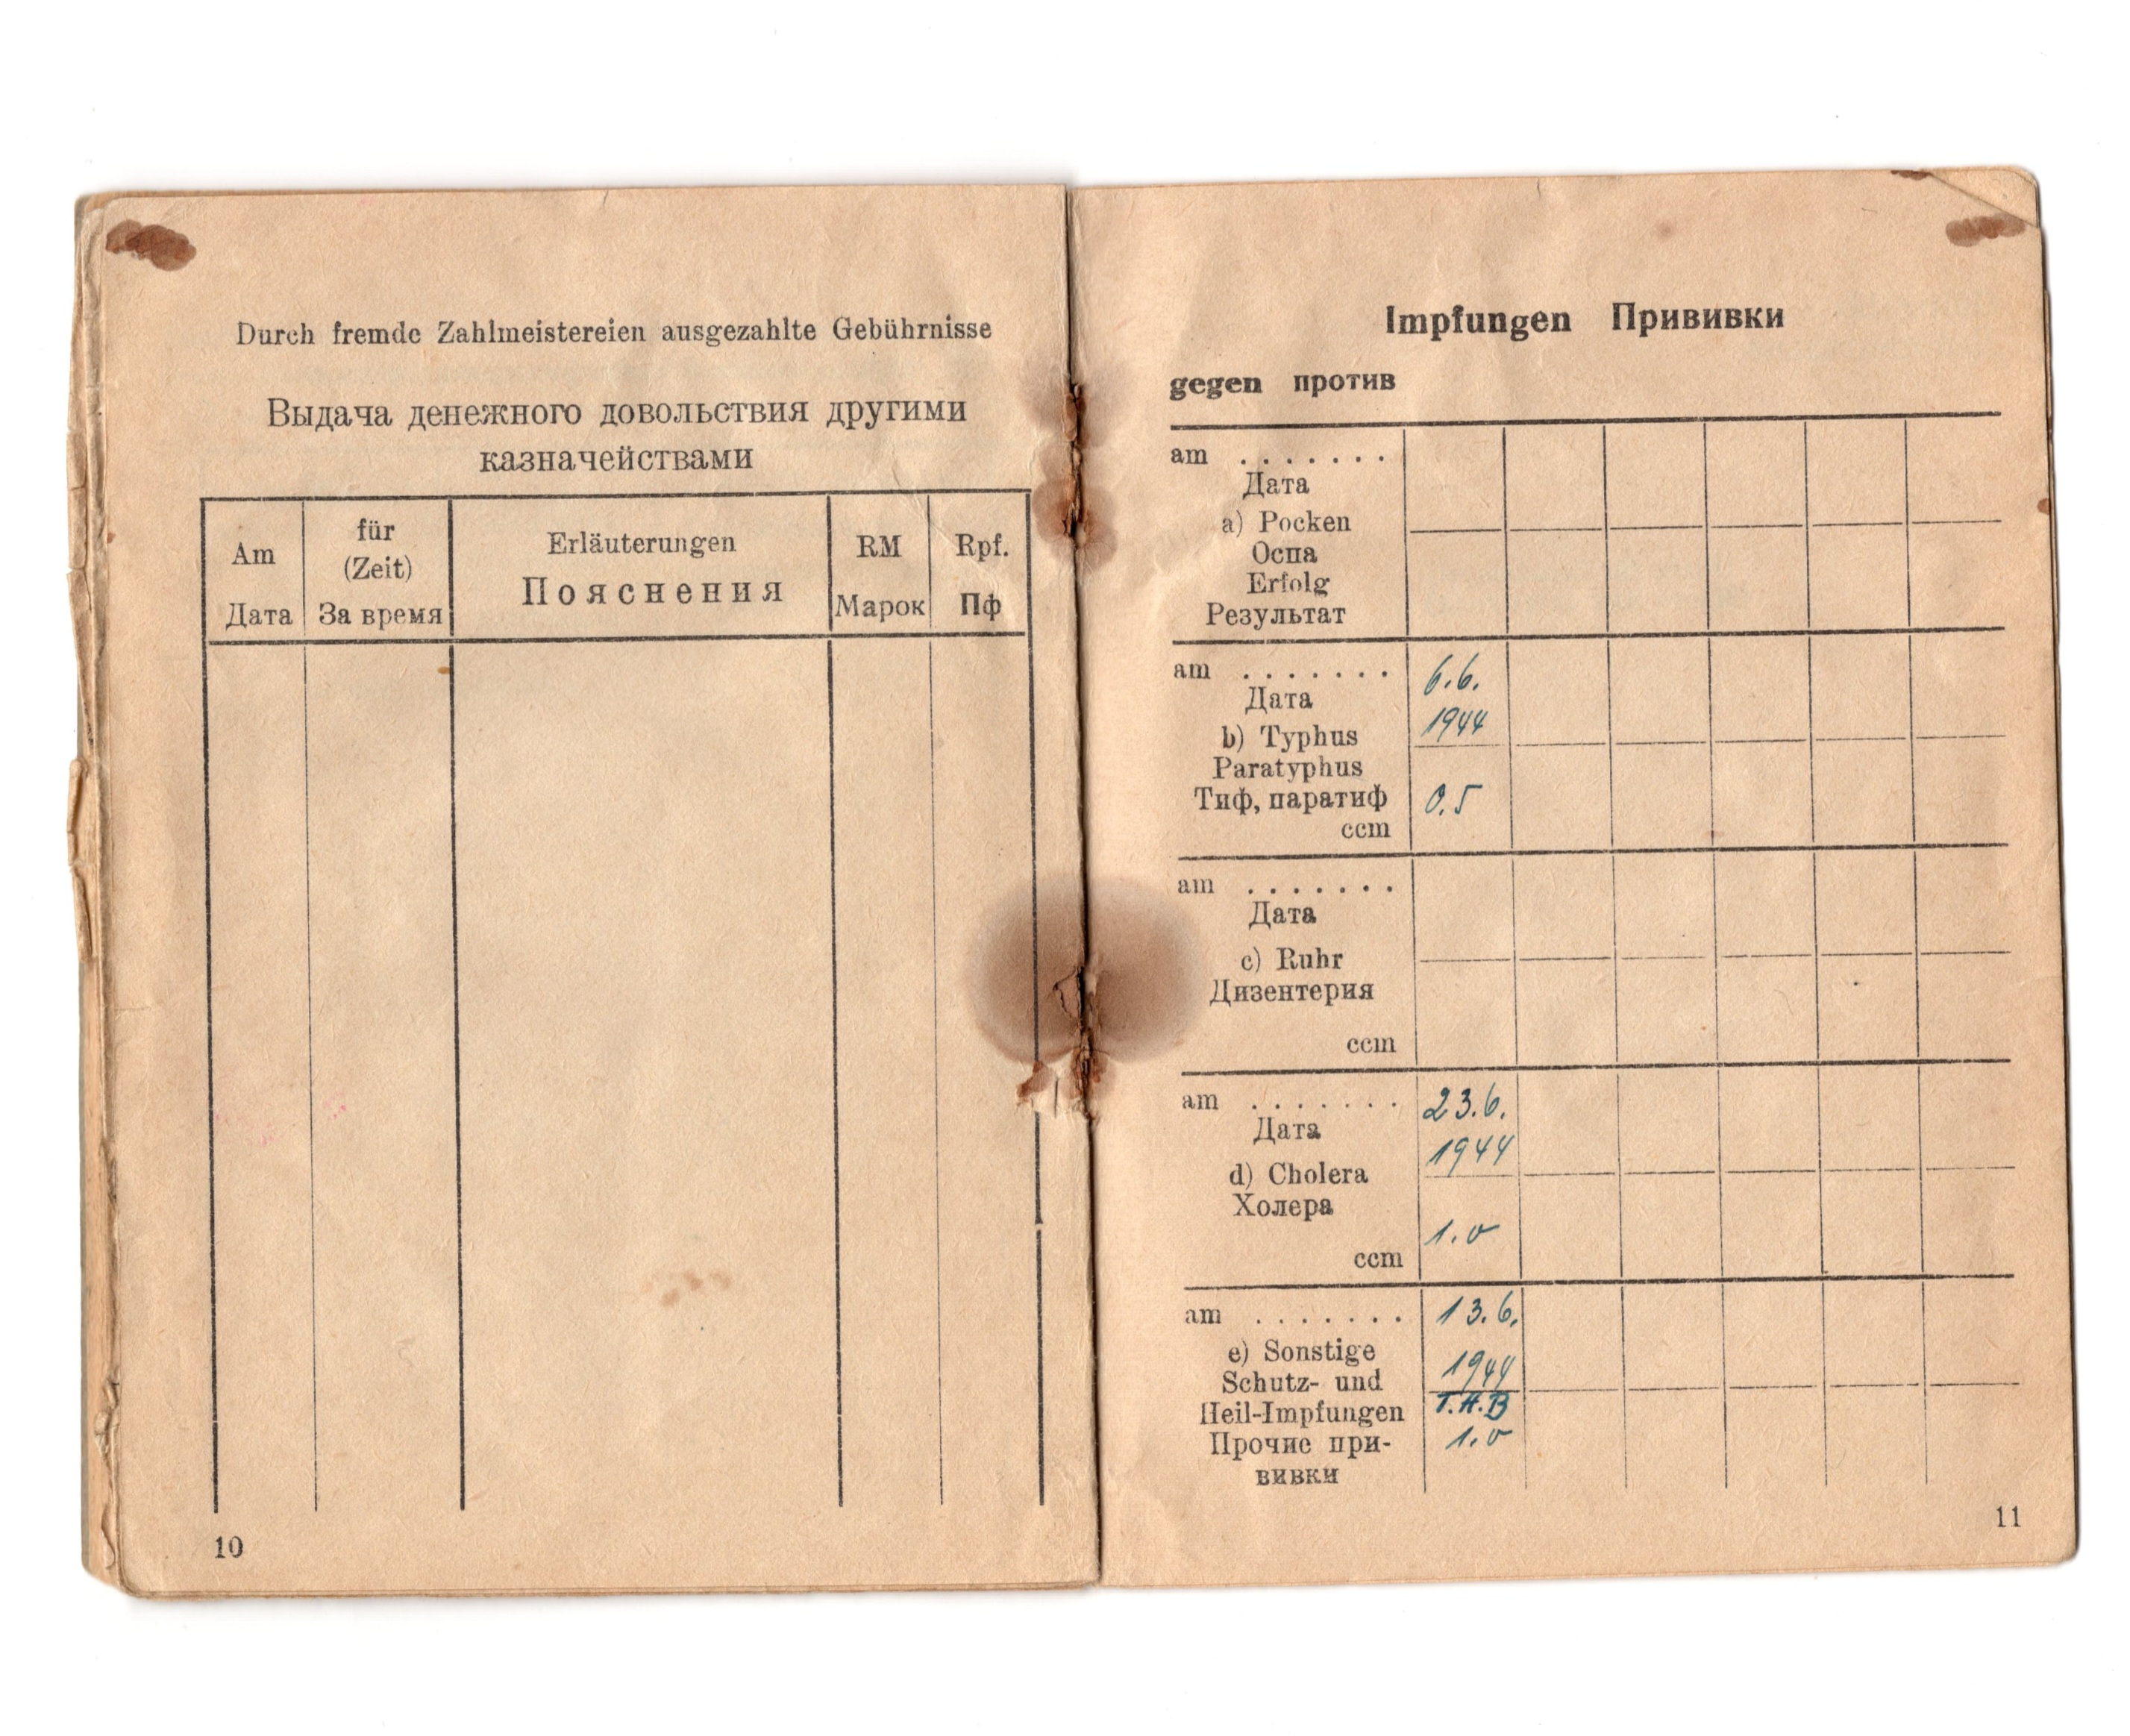 Durch fremde Zahlmeistereien ausgezahlte Gebührnisse
Выдача денежного довольствия другими
казначействами
Am
Дата
für
(Zeit)
За время
Erläuterungen
Пояснения
RM
Марок
Rpf.
Пф
10
Impfungen Прививки
gegen против
am .......
Дата
a) Pocken
Оспа
Erfolg
Результат
am ....... 6.6.
Дата 1944
b) Typhus
Paratyphus
Тиф, паратиф 0.5
ccm
am .......
Дата
c) Ruhr
Дизентерия
ccm
am ....... 23.6.
Дата 1944
d) Cholera
Холера
1.0
ccm
am ....... 13.6.
e) Sonstige 1944
Schutz- und
Heil-Impfungen T.A.B
Прочие при- 1.0
вивки
11